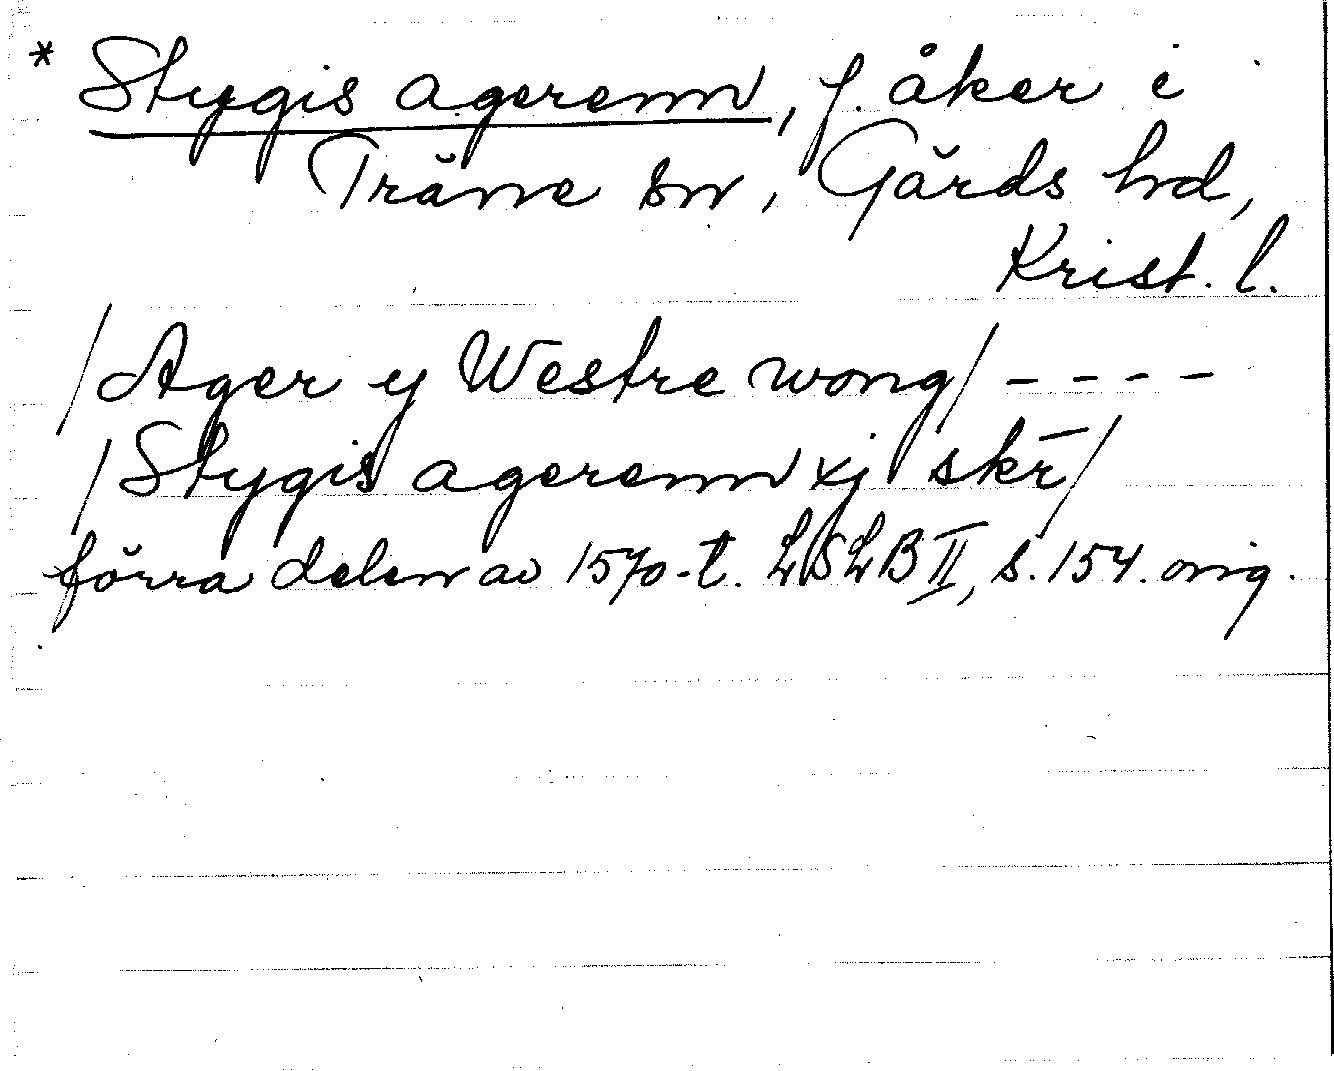 * Stygis agerenn, f. åker i
Träne sn, Gärds hd,
Krist. l.
/Ager y Westre wong/ - - - -
/Stygis agerenn xj skr̄/
förra delen av 1570-t. LSLB II, s. 154. orig.